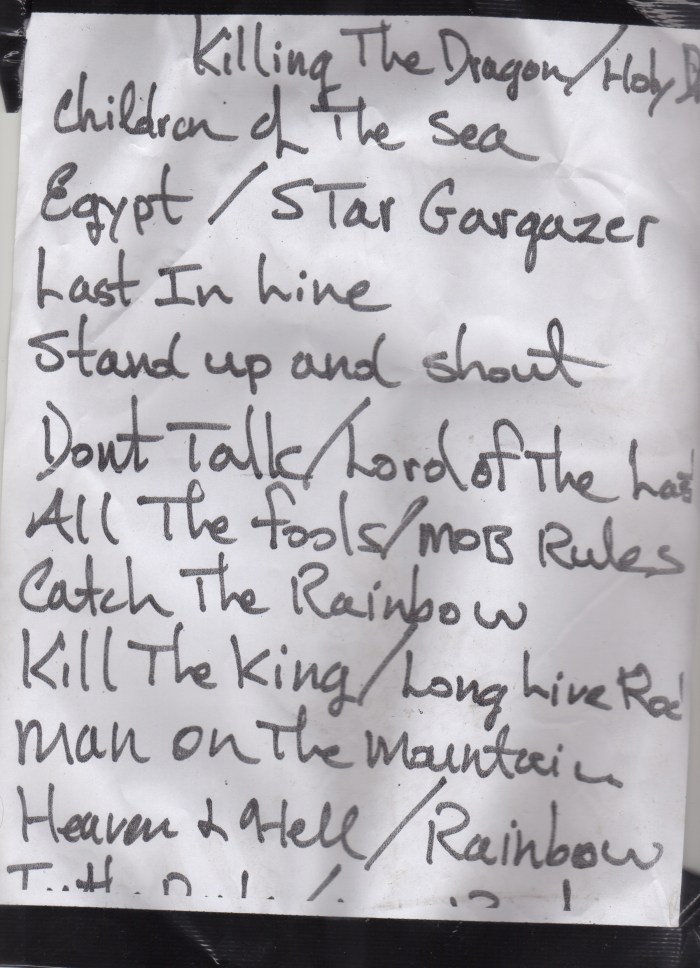 Killing The Dragon/Holy
Children of The Sea
Egypt / STar Gargazer
Last In Line
Stand up and shout
Dont Talk/Lord of The Las
All The fools/MOB Rules
Catch The Rainbow
Kill The King/Long Live Roc
Man on The Mountain
Heaven & Hell/Rainbow